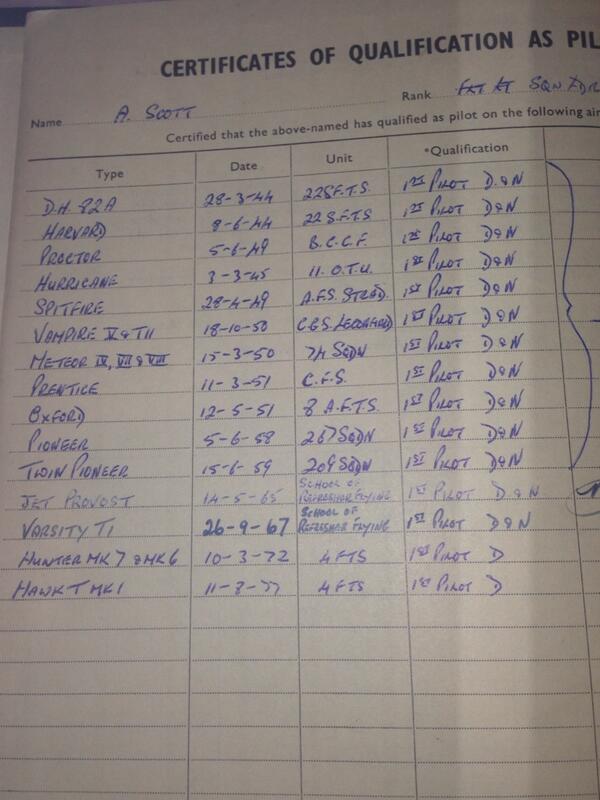 CERTIFICATES OF QUALIFICATION AS PIL
Name A. SCOTT Rank FLT LT SQN LDR
Certified that the above-named has qualified as pilot on the following air
Type Date Unit *Qualification
D.H. 82A 28-3-44 22 S.F.T.S. 1ST PILOT D&N
HARVARD 8-6-44 22 S.F.T.S 1ST PILOT D&N
PROCTOR 5-6-49 B.C.C.F. 1ST PILOT D&N
HURRICANE 3-3-45 11. O.T.U. 1ST PILOT D&N
SPITFIRE 28-4-49 A.F.S. 1ST PILOT D&N
VAMPIRE V & TII 18-10-50 C.G.S. LECONFIELD 1ST PILOT D&N
METEOR IV, VII & VIII 15-3-50 74 SQDN 1ST PILOT D&N
PRENTICE 11-3-51 C.F.S. 1ST PILOT D&N
OXFORD 12-5-51 8 A.F.T.S. 1ST PILOT D&N
PIONEER 5-6-58 267 SQDN 1ST PILOT D&N
TWIN PIONEER 15-6-59 209 SQDN 1ST PILOT D&N
JET PROVOST 14-5-65 SCHOOL OF REFRESHER FLYING 1ST PILOT D&N
VARSITY T1 26-9-67 SCHOOL OF REFRESHER FLYING 1ST PILOT D&N
HUNTER MK 7 & MK 6 10-3-72 4 FTS 1ST PILOT D
HAWK T MK1 11-8-77 4 FTS 1ST PILOT D